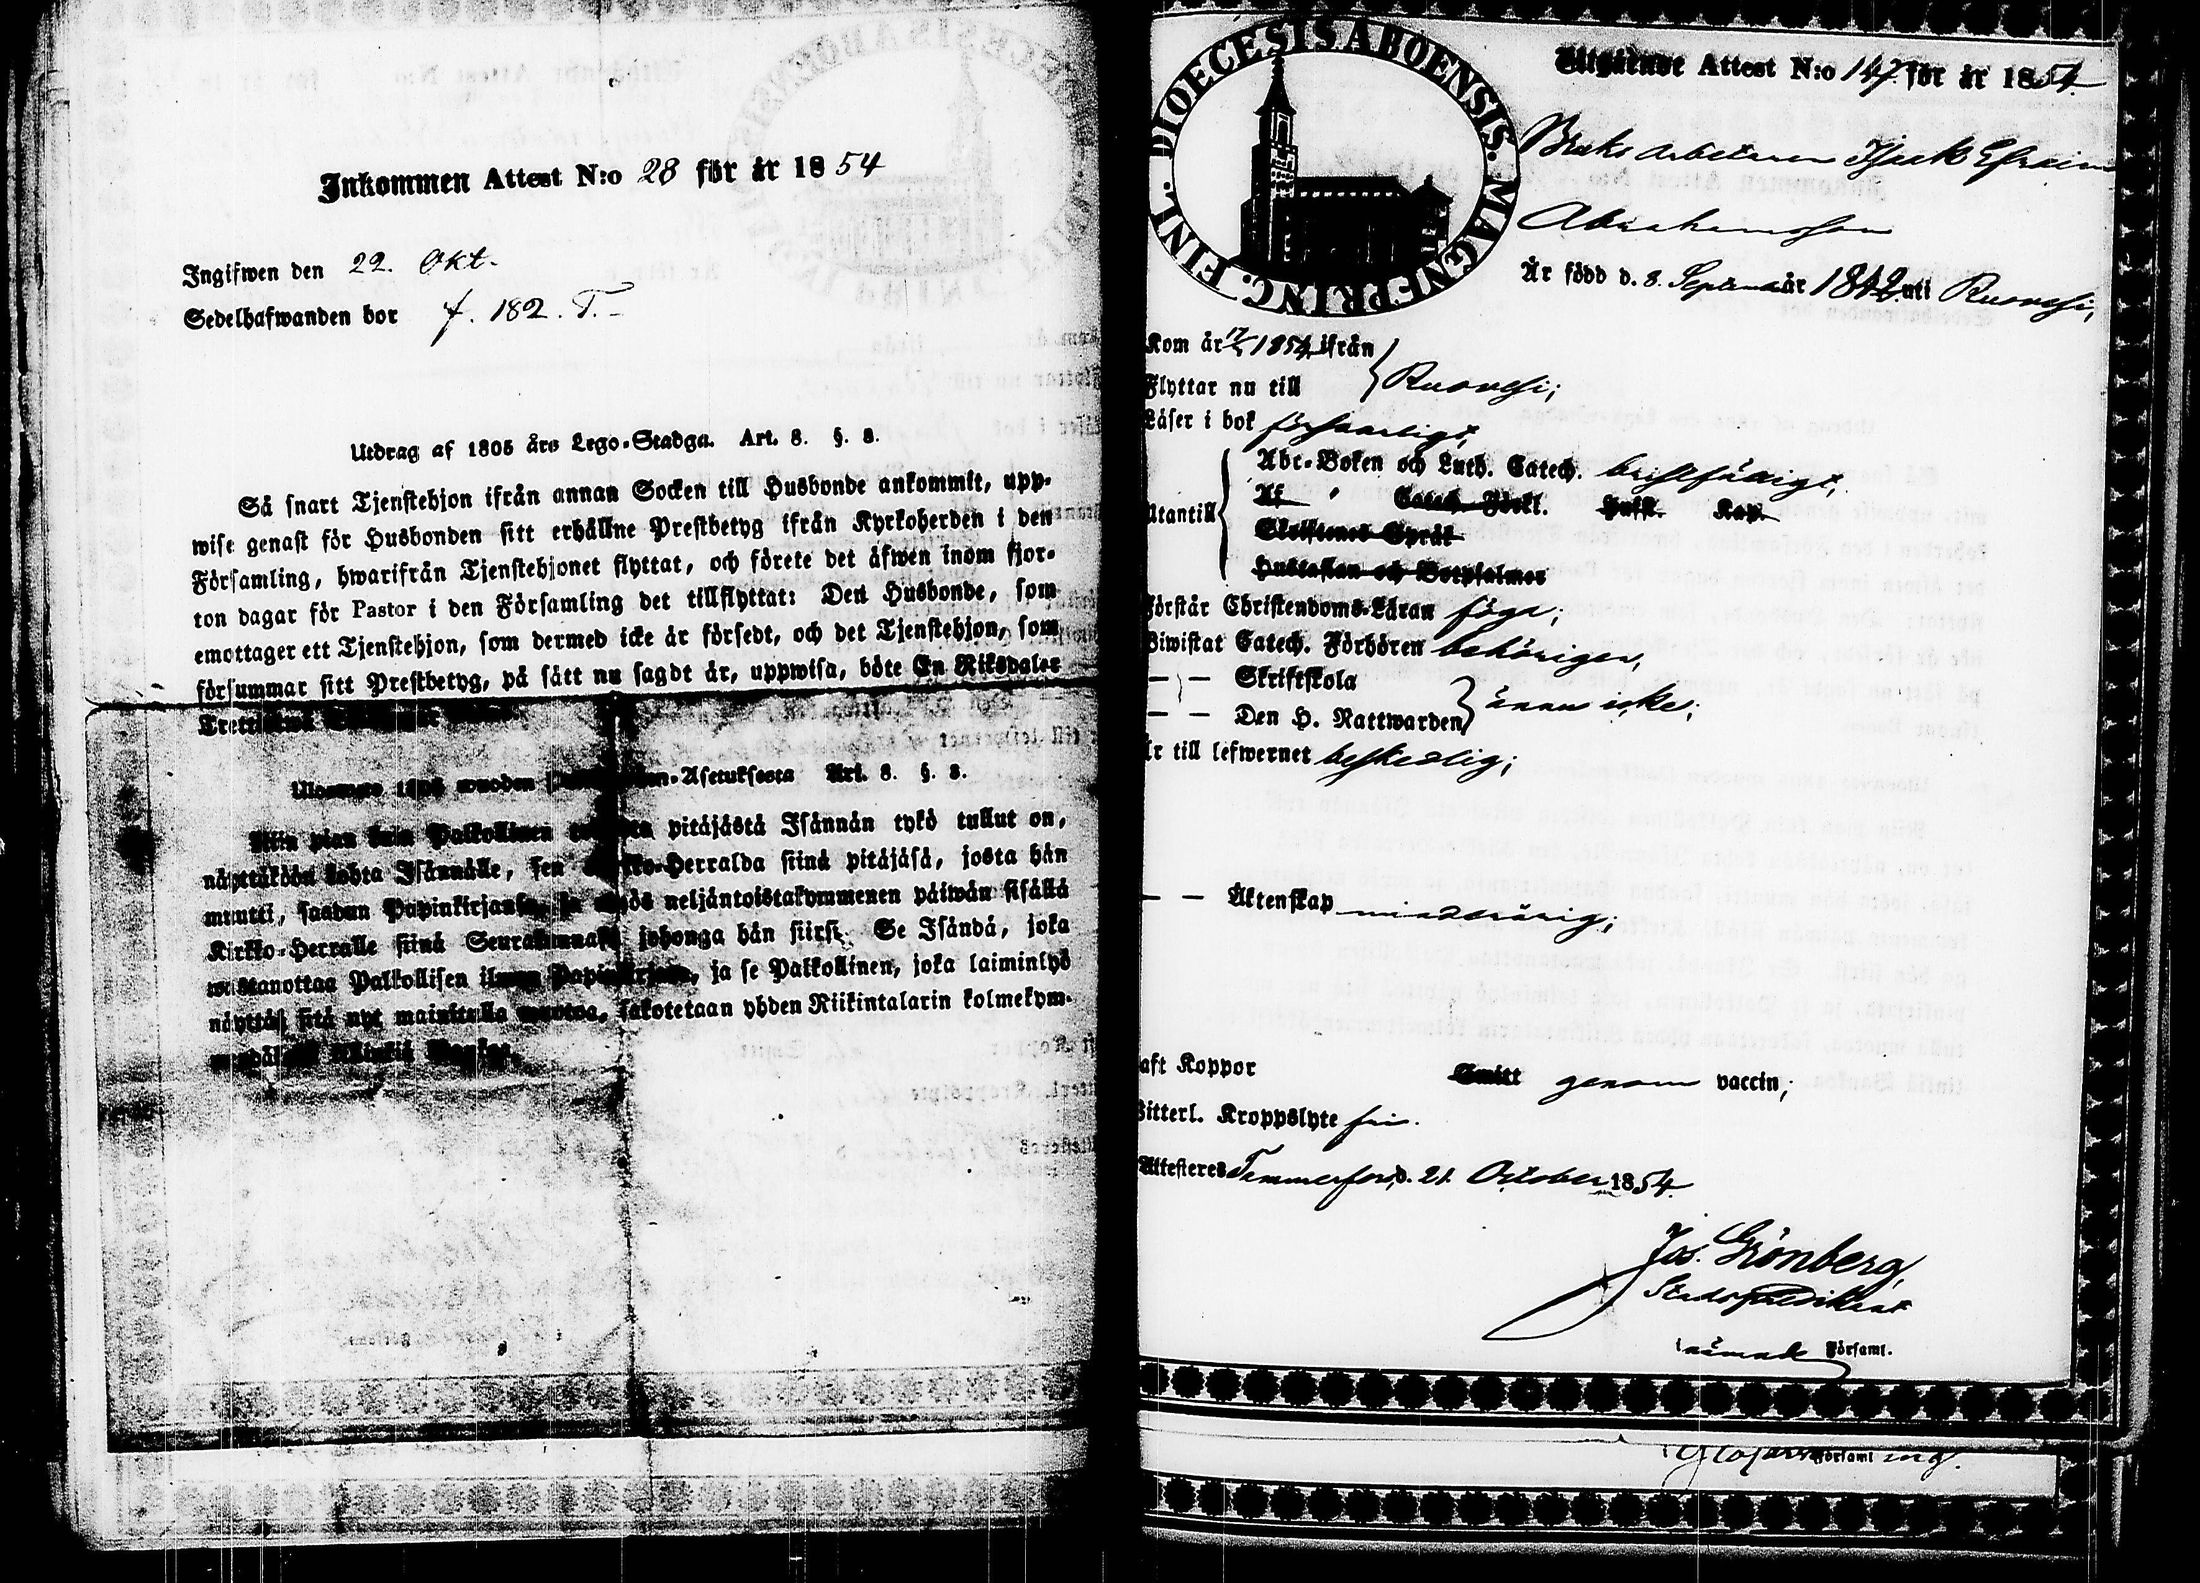 Inkommen Attest N:o 28 för år 1854
Ingifwen den 22. Okt.
Sedelhafwanden bor f. 182. T.
Utdrag af 1805 års Lego-Stadga. Art. 8. §. 8.
Så snart Tjenstehjon ifrån annan Socken till Husbonde ankommit, upp-
wise genast för Husbonden sitt erhållne Prestbetyg ifrån Kyrkoherden i den
Församling, hwarifrån Tjenstehjonet flyttat, och förete det äfwen inom fjor-
ton dagar för Pastor i den Församling det tillflyttat: Den Husbonde, som
emottager ett Tjenstehjon, som dermed icke är försedt, och det Tjenstehjon, som
försummar sitt Prestbetyg, på sätt nu sagdt är, uppwisa, böte En Riksdaler
1805 wuoden -Asetuksesta Art. 8. §. 8.
Niin pian kuin Palkollinen pitäjästä Isännän tykö tullut on,
näyttäköön kohta Isännälle, sen Kirkko-Herralda siinä pitäjäsä, josta hän
muutti, saadun Papinkirjansa, ja myös neljäntoistakymmenen päiwän sisällä
Kirkko-Herralle siinä Seurakunnasa johonga hän siirsi. Se Isändä, joka
wastaanottaa Palkollisen ilman Papinkirjata, ja se Palkollinen, joka laiminlyö
näyttää sitä nyt mainitulla muotoa, sakotetaan yhden Riikintalarin kolmekym-
DIOECESIS ABOENSIS. MAGNI PRINC. FINL.
Utgående Attest N:o 147 för år 1854.
Bruks arbetaren Isaak Efraim
Abrahamsson
Är född d. 8. September år 1842 uti Ruovesi,
Kom år 17/5 1854 ifrån
Flyttar nu till } Ruovesi;
Läser i bok försvarligt,
Utantill { Abc-Boken och Luth. Catech. bristfälligt,
Af " Catech. Förkl. Husst. Kap.
Skriftenes Språk
Hustaflan och Botpsalmer
Förstår Christendoms-Läran föga;
Biwistat Catech. Förhören behörigen,
— — Skriftskola
— — Den H. Nattwarden } ännu icke;
Är till lefwernet beskedlig;
— — Äktenskap minderårig;
Haft Koppor Smitt genom vaccin;
Witterl. Kroppslyte fri.
Attesteres Tammerfors, d. 21. October 1854.
Jos. Grönberg,
Stadspredikant
Församl.
Församl ing.